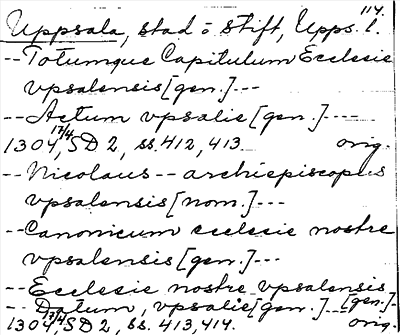 114.
Uppsala, stad o stift, Upps. l.
-- Totumque Capitulum Ecclesie
vpsalensis [gen.] ---
-- Actum vpsalie [gen.] ----
1304 17/4, SD 2, ss. 412, 413. orig.
-- Nicolaus -- archiepiscopus
vpsalensis [nom.] ---
-- Canonicum ecclesie nostre
vpsalensis [gen.] ---
-- Ecclesie nostre vpsalensis [gen.] --
-- Datum, vpsalie [gen.] ---
1304 17/4, SD 2, ss. 413, 414. orig.